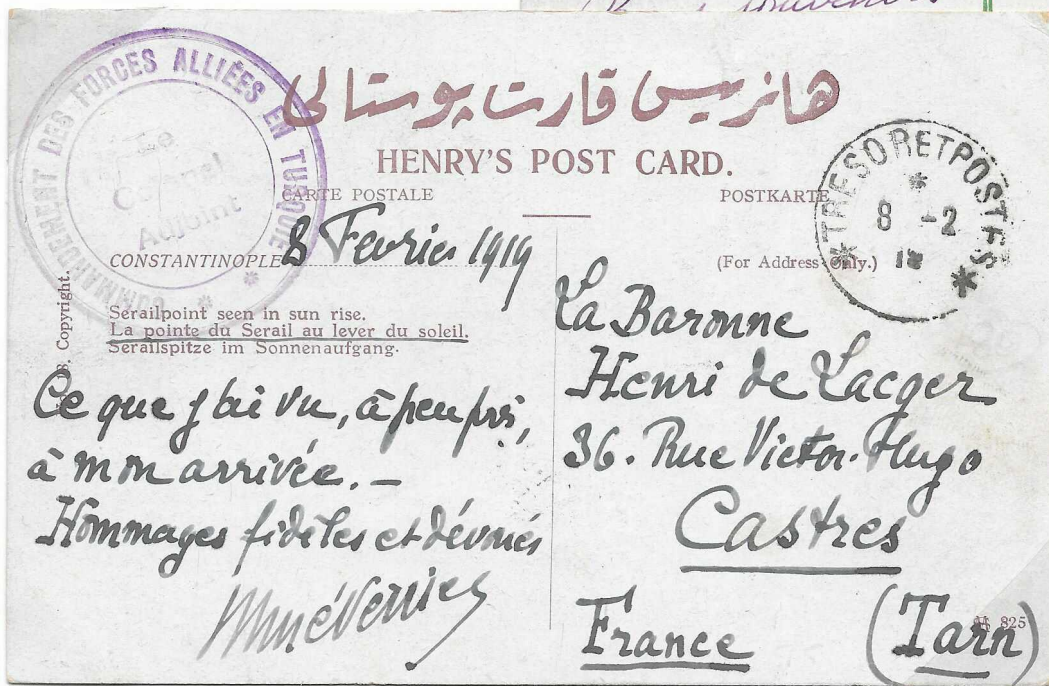 COMMANDEMENT DES FORCES ALLIÉES EN TURQUIE
Le
Adjoint
هانریس قارت پوستالی
HENRY'S POST CARD.
CARTE POSTALE
POSTKARTE
TRESOR ET POSTES
8 -2
CONSTANTINOPLE 8 Fevrier 1919
(For Address Only.)
Copyright.
Serailpoint seen in sun rise.
La pointe du Serail au lever du soleil.
Serailspitze im Sonnenaufgang.
Ce que j'ai vu, à peu près,
à mon arrivée. —
Hommages fidèles et dévoués
La Baronne
Henri de Lacger
36. Rue Victor-Hugo
Castres
France (Tarn)
825